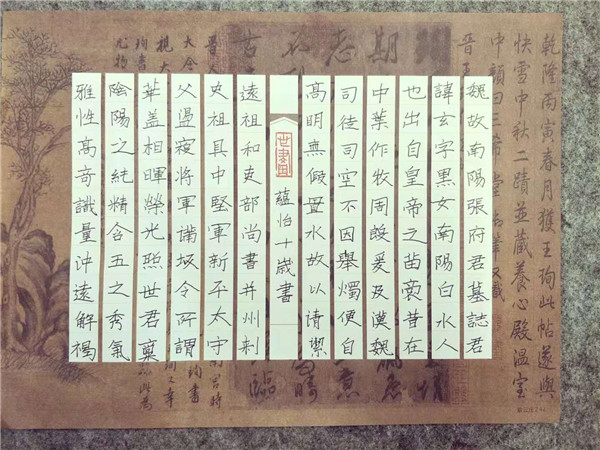 乾隆丙寅春月獲王珣此帖遂與
快雪中秋二蹟並藏養心殿溫室
中顏曰三希堂
魏故南陽張府君墓誌君
諱玄字黑女南陽白水人
也出自皇帝之苗裔昔在
中葉作牧周殷爰及漢魏
司徒司空不因舉燭便自
高明無假置水故以清潔
蘊怡十歲書
遠祖和吏部尚書并州刺
史祖具中堅軍新平太守
父盪寇將軍蒲坂令所謂
華盖相暉榮光照世君稟
陰陽之純精含五之秀氣
雅性高奇識量沖遠解褐